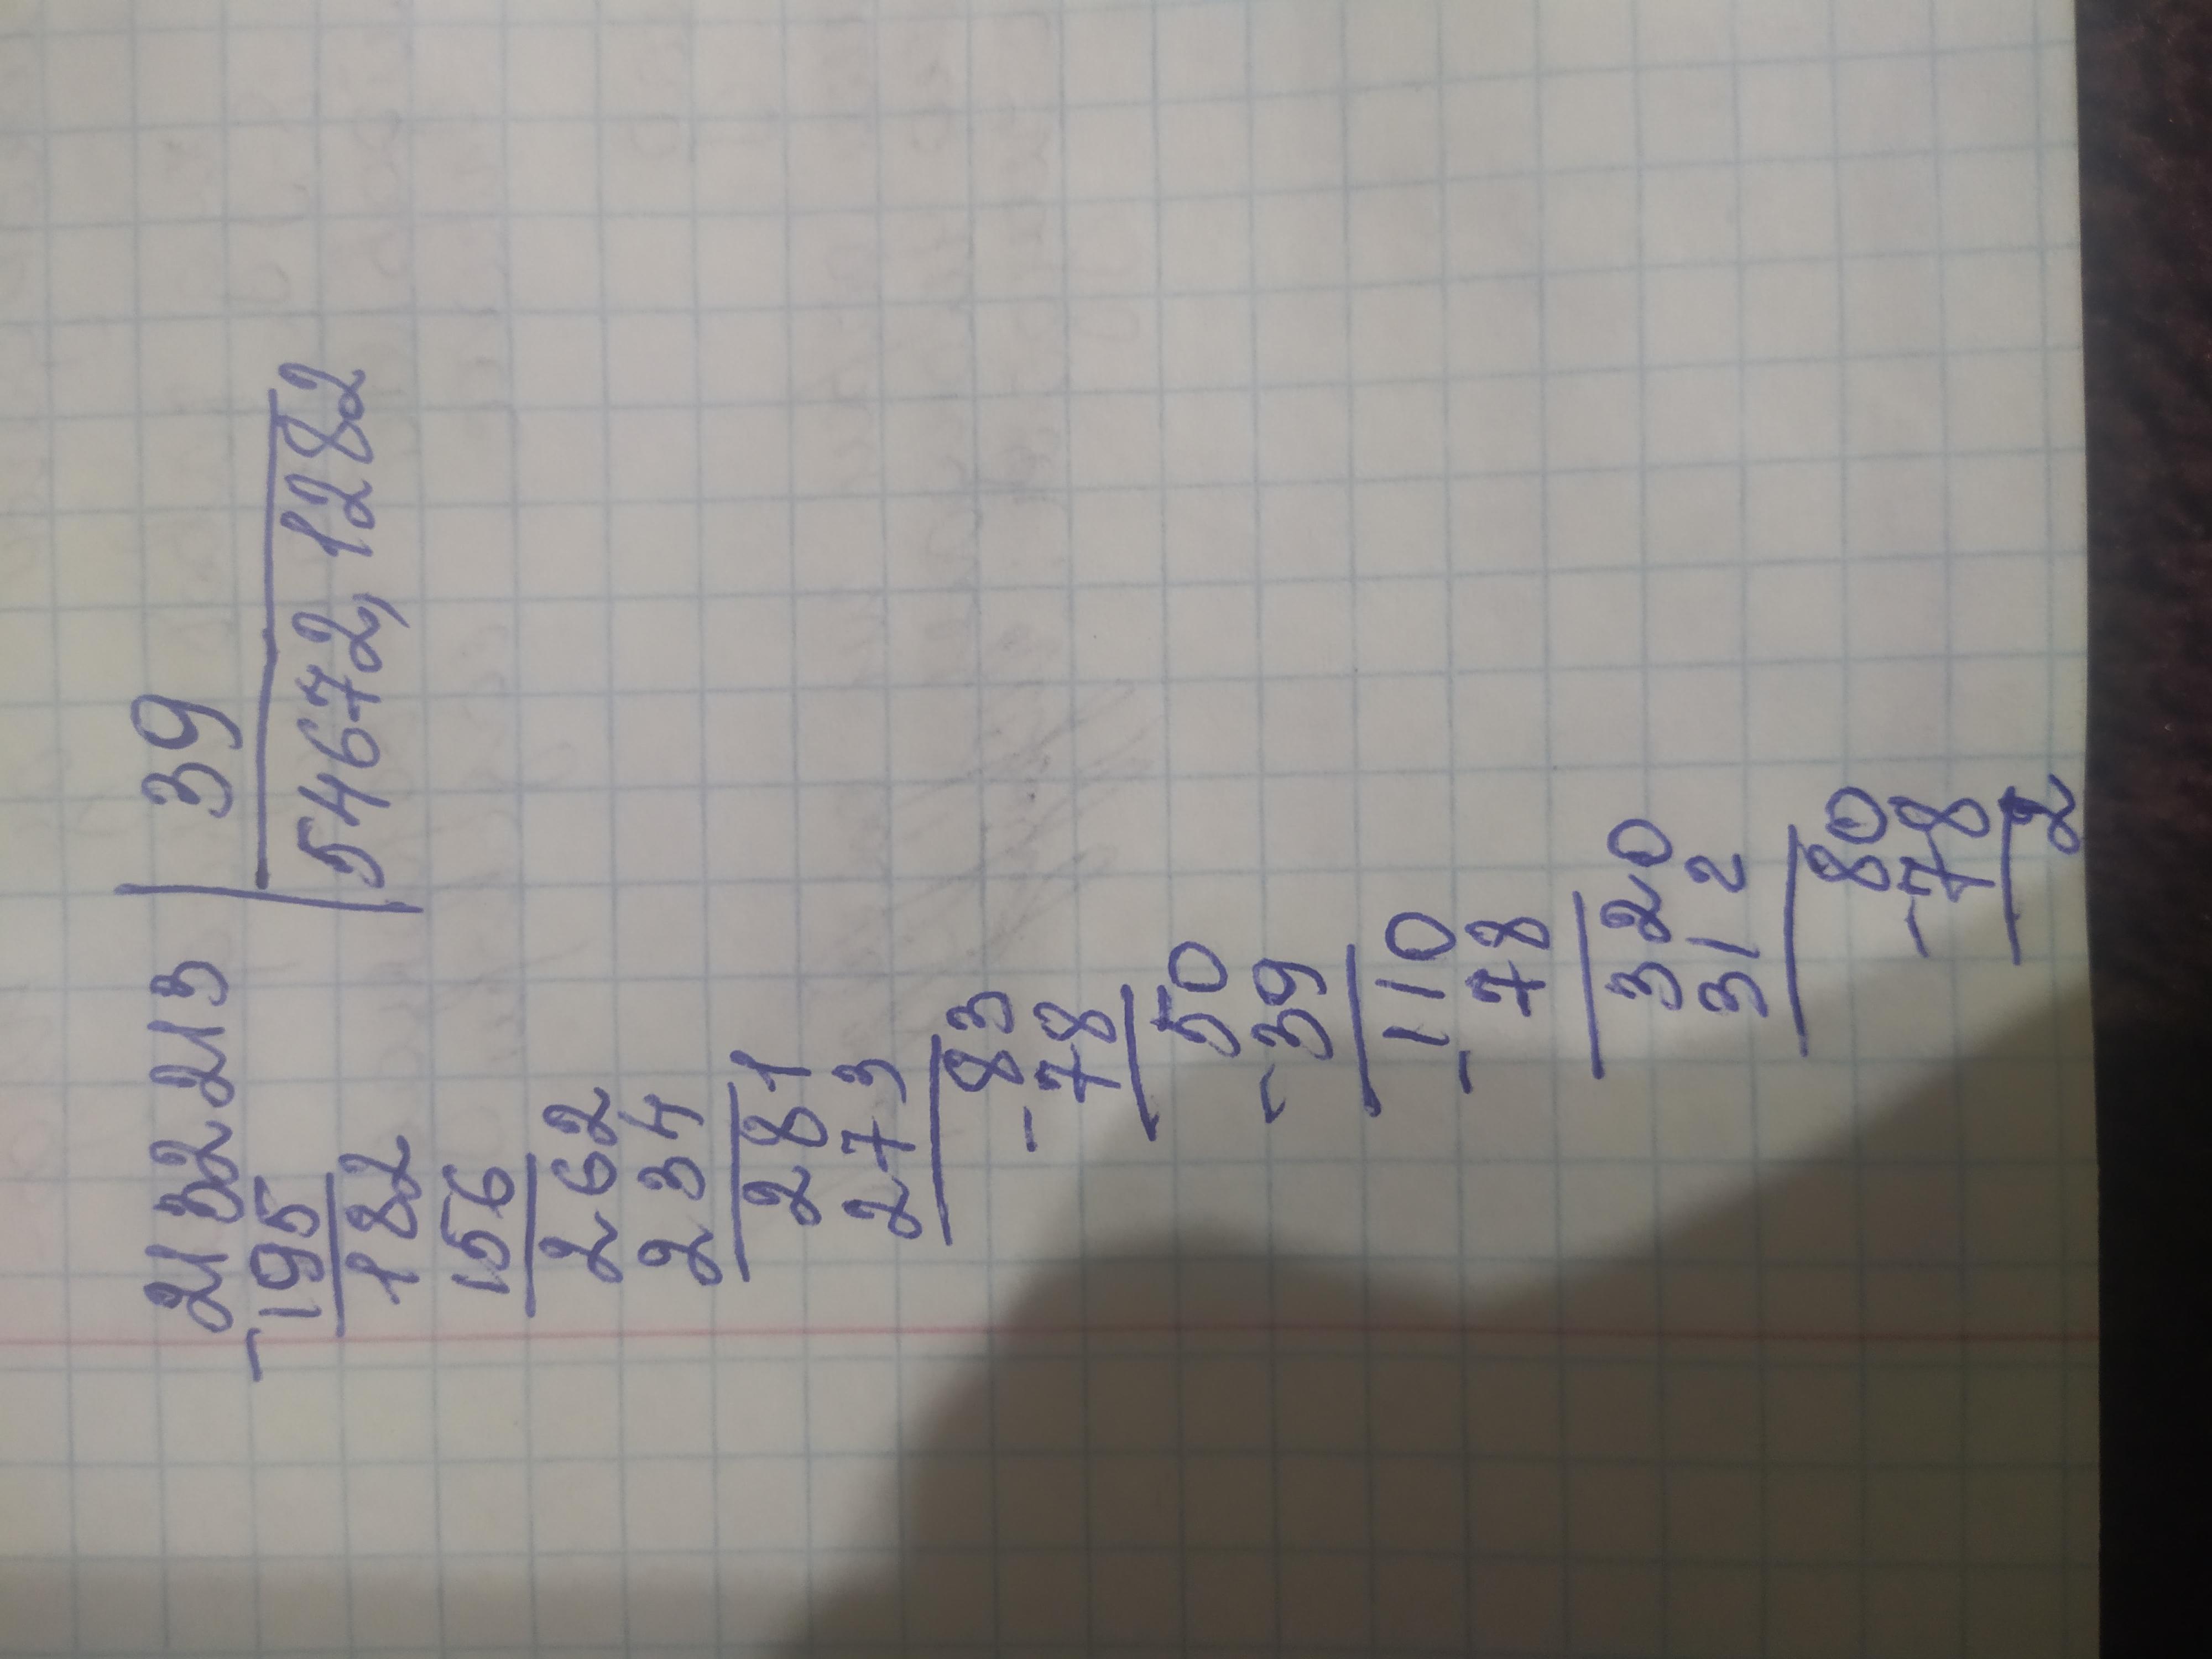 2132213 39
-195 54672,1282
182
156
262
234
281
273
83
-78
50
-39
110
-78
320
312
80
-78
2